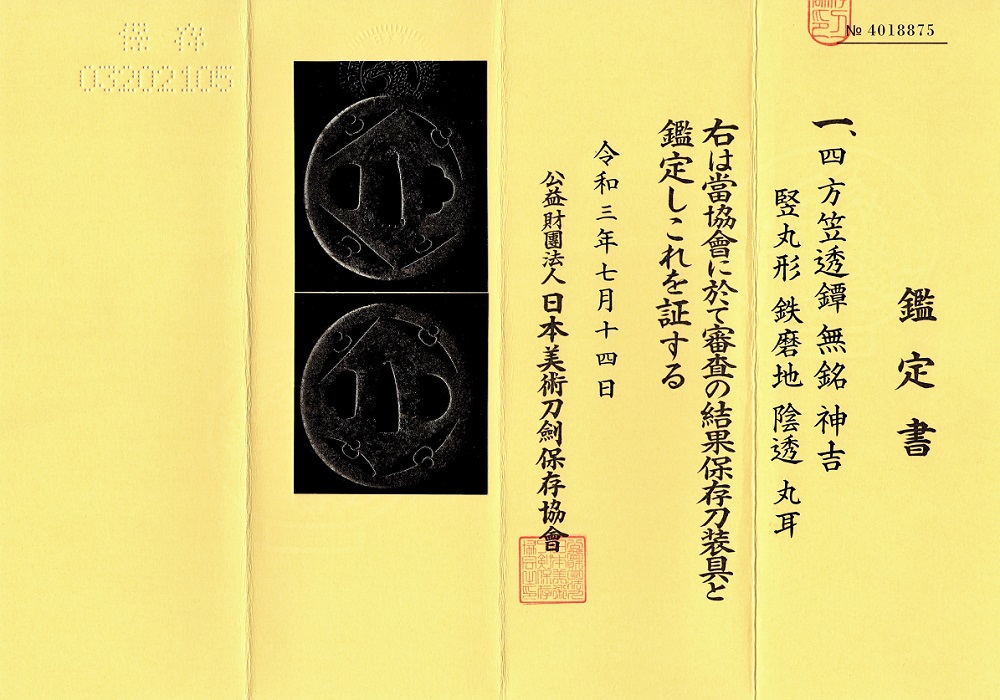 № 4018875
鑑定書
一、四方笠透鐔 無銘 神吉
竪丸形 鉄磨地 陰透 丸耳
右は當協會に於て審査の結果保存刀装具と
鑑定しこれを証する
令和三年七月十四日
公益財團法人 日本美術刀劍保存協會
保存
03202105